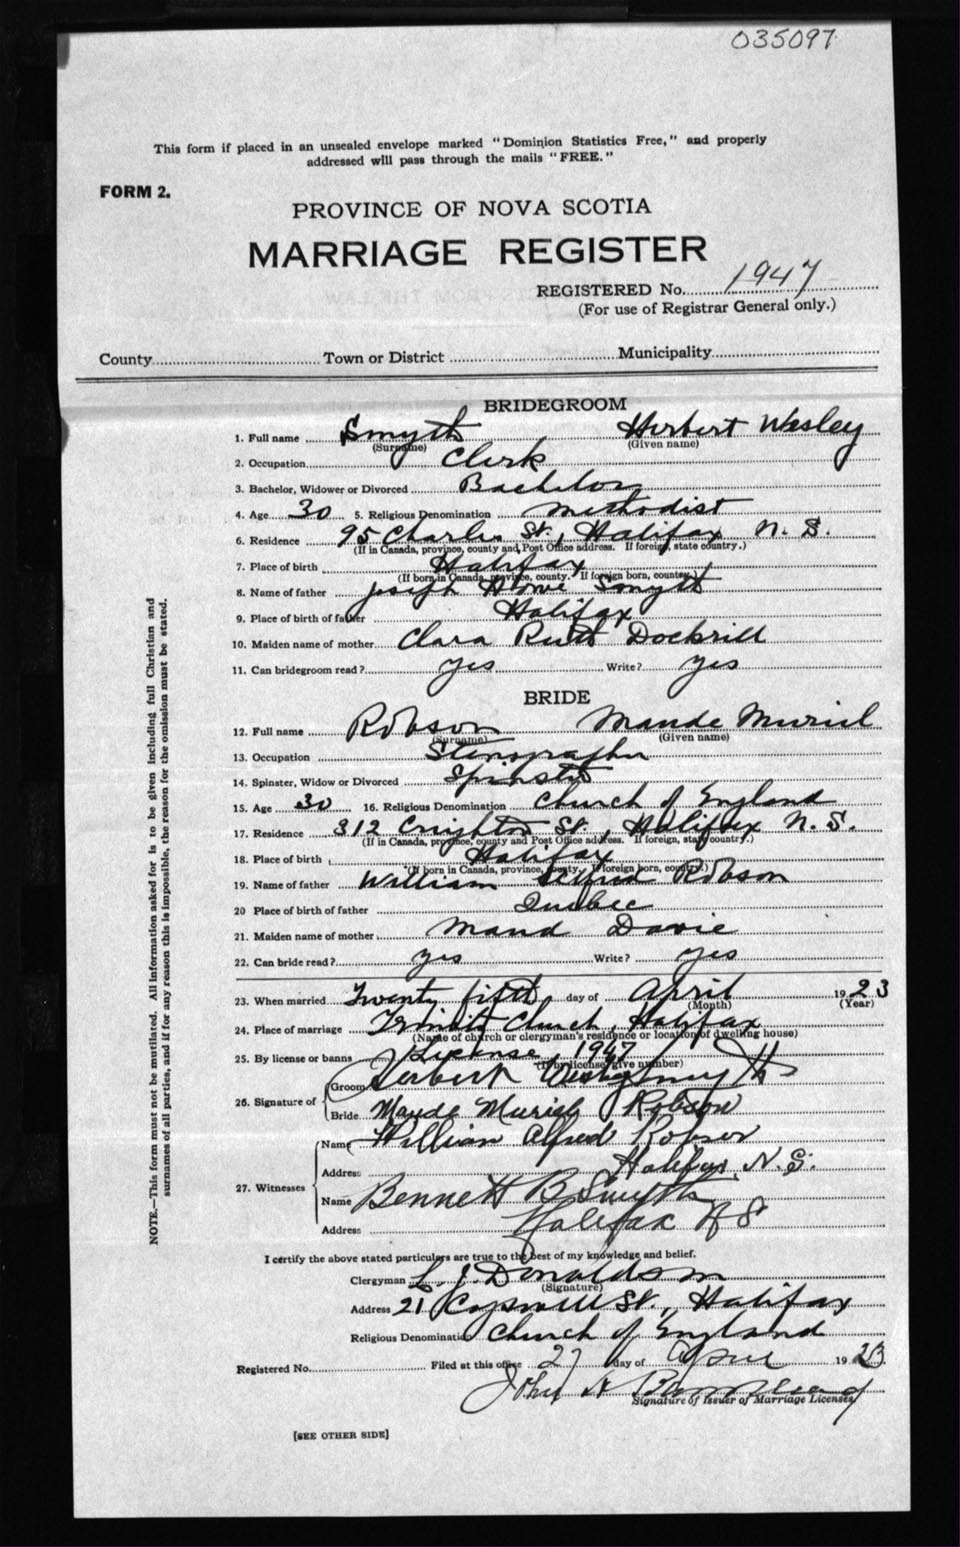 035097
This form if placed in an unsealed envelope marked "Dominion Statistics Free," and properly
addressed will pass through the mails "FREE."
FORM 2.
PROVINCE OF NOVA SCOTIA
MARRIAGE REGISTER
REGISTERED No. 1947
(For use of Registrar General only.)
County Town or District Municipality
BRIDEGROOM
1. Full name Smyth Herbert Wesley
(Surname) (Given name)
2. Occupation Clerk
3. Bachelor, Widower or Divorced Bachelor
4. Age 30 5. Religious Denomination Methodist
6. Residence 95 Charles St., Halifax N. S.
(If in Canada, province, county and Post Office address. If foreign, state country.)
7. Place of birth Halifax
(If born in Canada, province, county. If foreign born, country.)
8. Name of father Joseph Howe Smyth
9. Place of birth of father Halifax
10. Maiden name of mother Clara Ruth Dockrill
11. Can bridegroom read? yes Write? yes
BRIDE
12. Full name Robson Maude Muriel
(Surname) (Given name)
13. Occupation Stenographer
14. Spinster, Widow or Divorced Spinster
15. Age 30 16. Religious Denomination Church of England
17. Residence 312 Creighton St., Halifax N. S.
(If in Canada, province, county and Post Office address. If foreign, state country.)
18. Place of birth Halifax
(If born in Canada, province, county. If foreign born, country.)
19. Name of father William Alfred Robson
20 Place of birth of father Quebec
21. Maiden name of mother Maud Davie
22. Can bride read? yes Write? yes
23. When married Twenty fifth day of April 1923
(Month) (Year)
24. Place of marriage Trinity Church, Halifax
(Name of church or clergyman's residence or location of dwelling house)
25. By license or banns License, 1947
(If by license, give number)
26. Signature of Groom Herbert Wesley Smyth
Bride Maude Muriel Robson
27. Witnesses Name William Alfred Robson
Address Halifax, N. S.
Name Bennett B Smyth
Address Halifax N S
I certify the above stated particulars are true to the best of my knowledge and belief.
Clergyman L. J. Donaldson
(Signature)
Address 21 Cogswell St., Halifax
Religious Denomination Church of England
Registered No. Filed at this office 27 day of April 1923
John A
Signature of Issuer of Marriage Licenses.
[SEE OTHER SIDE]
NOTE.—This form must not be mutilated. All information asked for is to be given including full Christian and
surnames of all parties, and if for any reason this is impossible, the reason for the omission must be stated.